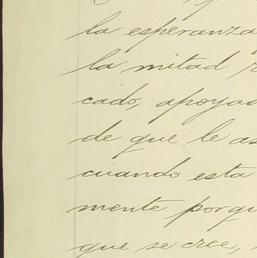 la esperanza
la mitad
cado, apoyad
de que le as
cuando esta
mente porqu
que se cree,